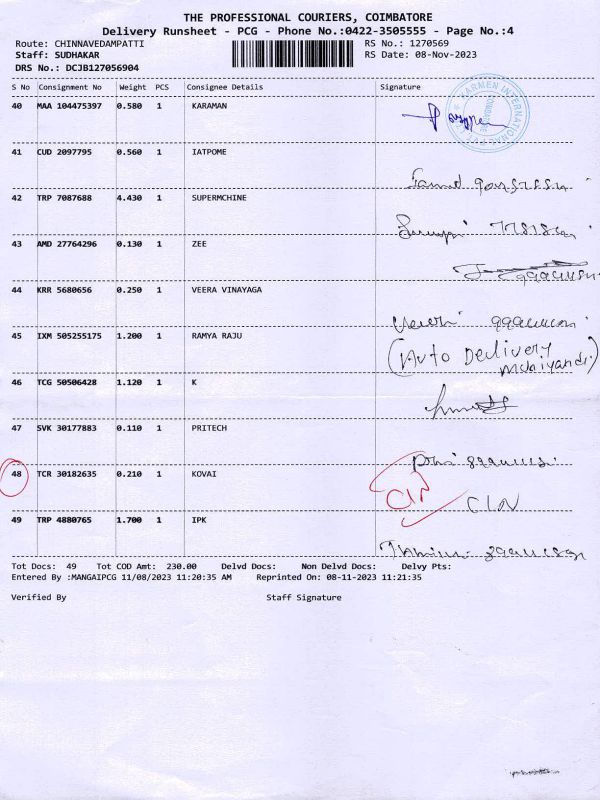 THE PROFESSIONAL COURIERS, COIMBATORE
Delivery Runsheet - PCG - Phone No.:0422-3505555 - Page No.:4
Route: CHINNAVEDAMPATTI RS No.: 1270569
Staff: SUDHAKAR RS Date: 08-Nov-2023
DRS No.: DCJB127056904
S No Consignment No Weight PCS Consignee Details Signature
40 MAA 104475397 0.580 1 KARAMAN
KARMEN INTERNATIONAL
41 CUD 2097795 0.560 1 IATPOME
42 TRP 7087688 4.430 1 SUPERMCHINE
43 AMD 27764296 0.130 1 ZEE
44 KRR 5680656 0.250 1 VEERA VINAYAGA
45 IXM 505255175 1.200 1 RAMYA RAJU
(Auto Delivery
46 TCG 50506428 1.120 1 K
47 SVK 30177883 0.110 1 PRITECH
48 TCR 30182635 0.210 1 KOVAI
CIN
49 TRP 4880765 1.700 1 IPK
Tot Docs: 49 Tot COD Amt: 230.00 Delvd Docs: Non Delvd Docs: Delvy Pts:
Entered By :MANGAIPCG 11/08/2023 11:20:35 AM Reprinted On: 08-11-2023 11:21:35
Verified By Staff Signature